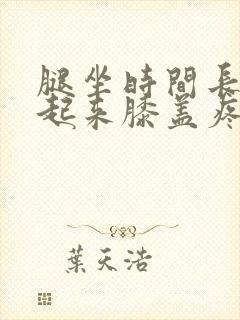 腿坐時間長
起来膝盖疼
葉天浩